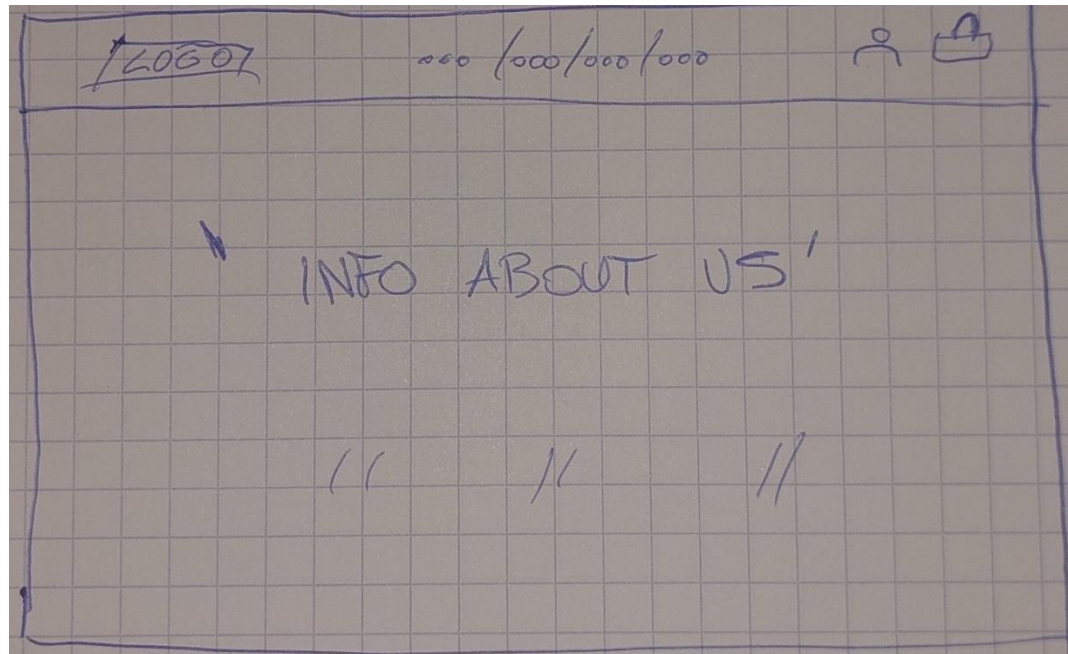 LOGO ooo /ooo/ooo/ooo
' INFO ABOUT US '
// // //